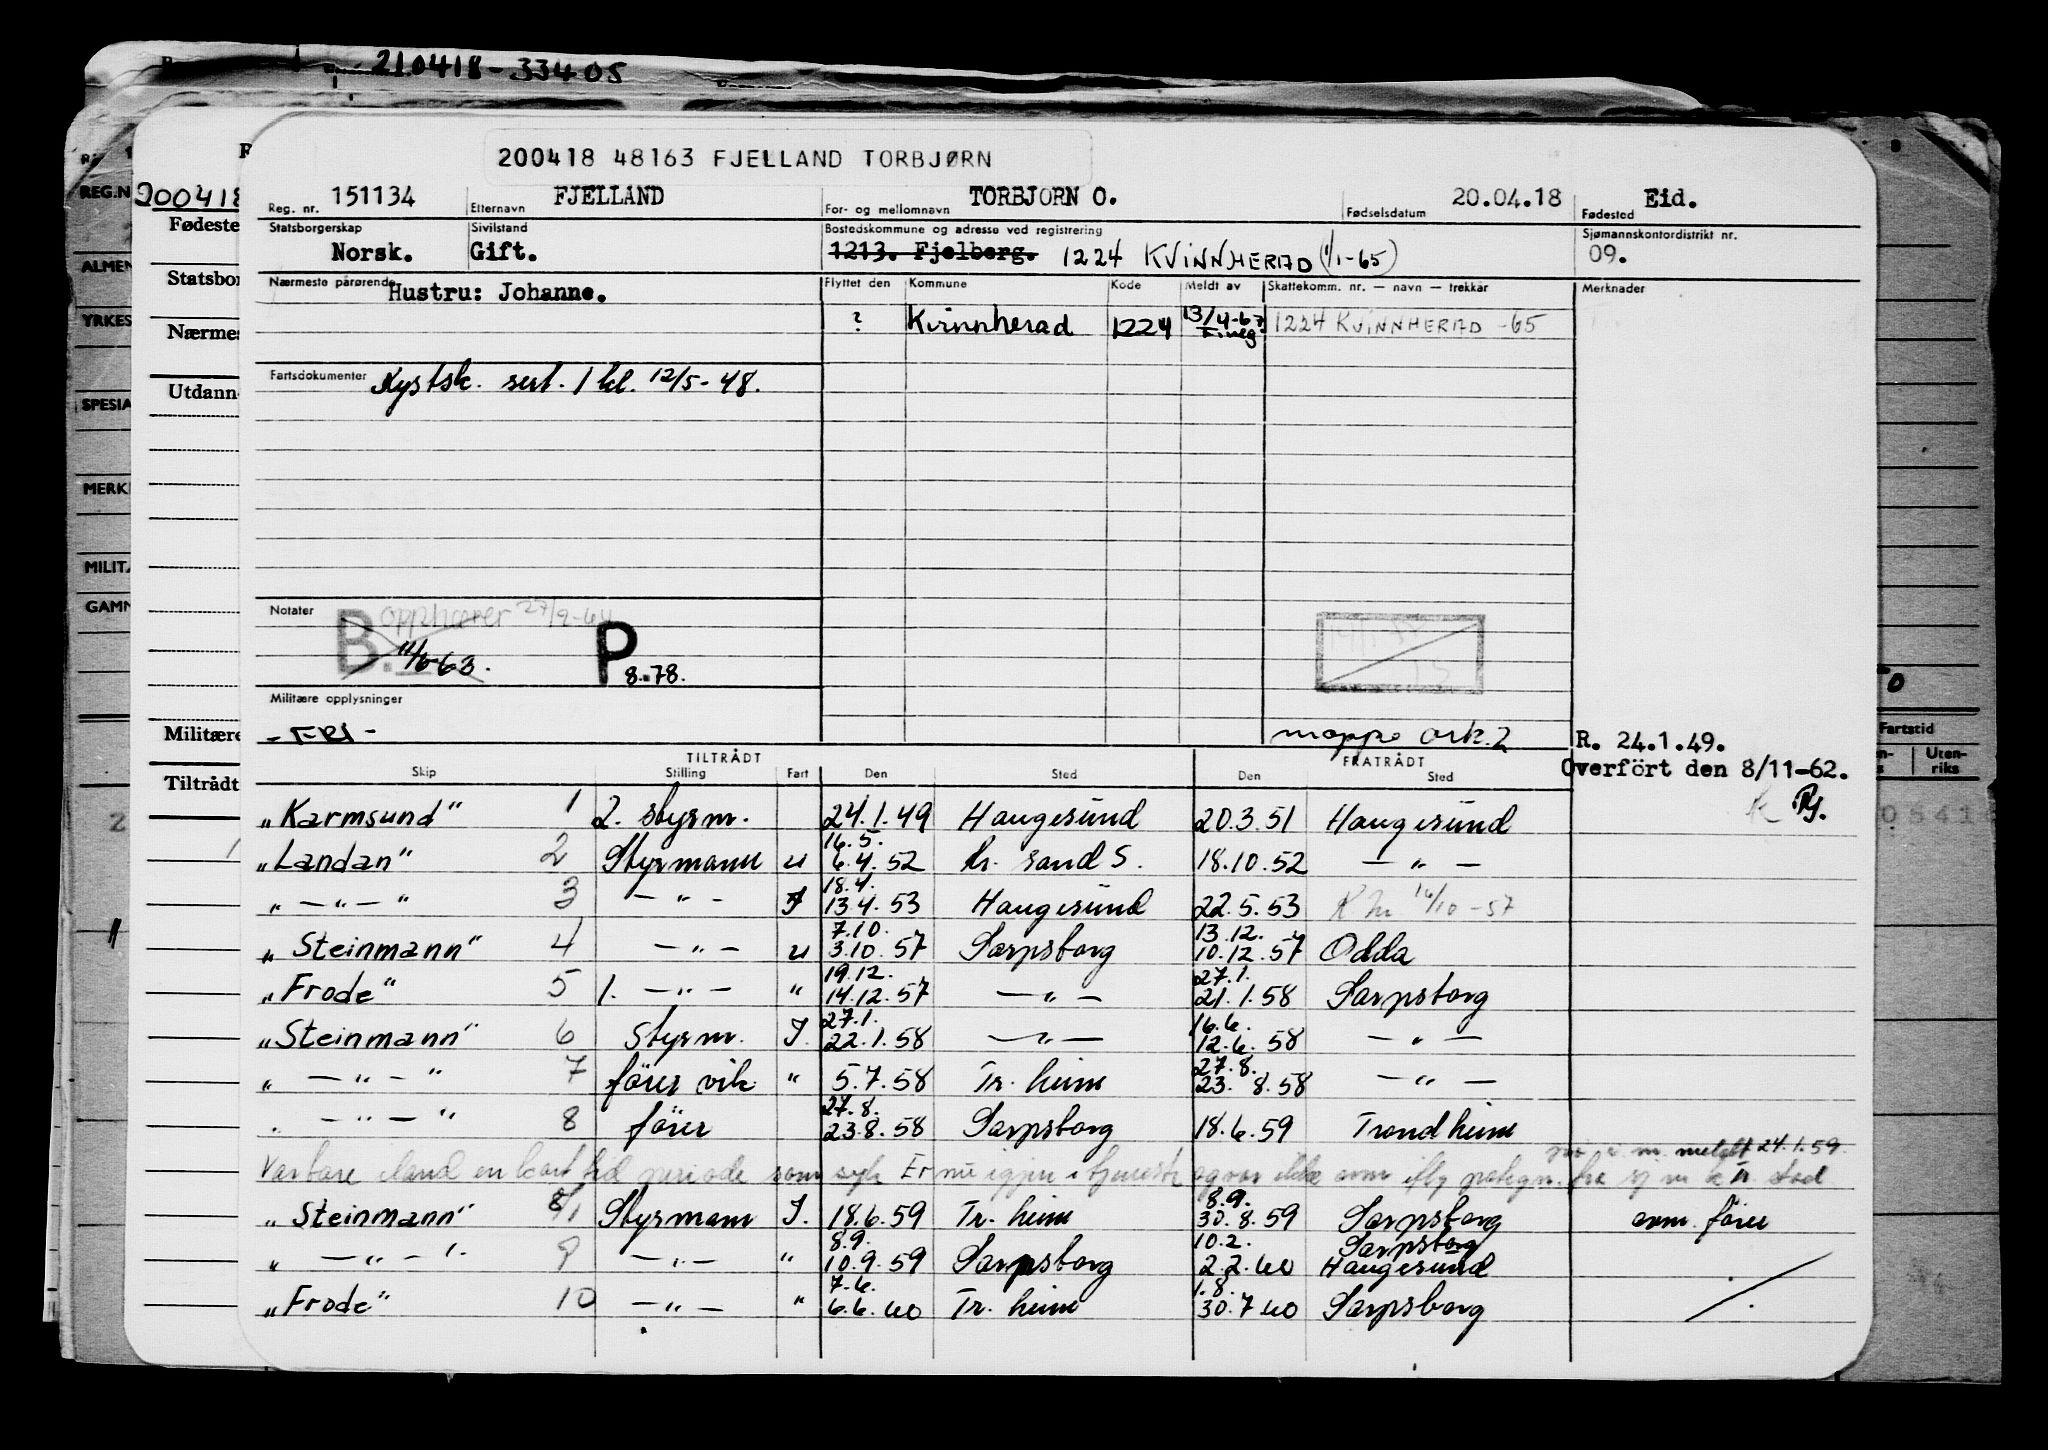 210418-33405
200418 48163 FJELLAND TORBJØRN
REG.N
200418
Reg. nr. 151134 Etternavn FJELLAND For- og mellomnavn TORBJORN O. Fødselsdatum 20.04.18 Fødested Eid.
Fødeste
Statsborgerskap Sivilstand Bostedskommune og adresse ved registrering Sjømannskontordistrikt nr.
Norsk. Gift. 1213. Fjelberg. 1224 KVINNHERAD (1/1-65) 09.
ALMEN
Statsbor
Nærmeste pårørende Hustru: Johanne. Flyttet den Kommune Kode Meldt av Skattekomm. nr. — navn — trekkår Merknader
YRKES
Nærmes
? Kvinnherad 1224 13/4-67 1224 KVINNHERAD -65
Fartsdokumenter Kystsk. sert. 1 kl. 12/5-48.
Utdann
SPESIA
MERK
MILIT
GAMN
Notater
B. opphører 27/9-64
11/6-63.
P 8.78.
Militære opplysninger
Militære
- FRI -
mappe ark. 2
R. 24.1.49.
Overfört den 8/11-62.
Fartstid
Uten-
riks
Tiltrådt
TILTRÅDT FRATRÅDT
Skip Stilling Fart Den Sted Den Sted
„Karmsund" 1 2. styrm. 24.1.49 Haugesund 20.3.51 Haugesund
16.5.
„Landan" 2 Styrmann u 6.4.52 Kr. sand S. 18.10.52 — " —
18.4.
„ — " — " 3 — " - I 13.4.53 Haugesund 22.5.53 16/10-57
7.10. 13.12.
„Steinmann" 4 — " — u 3.10.57 Sarpsborg 10.12.57 Odda
19.12. 27.1.
„Frode" 5 1. — " — " 14.12.57 — " — 21.1.58 Sarpsborg
27.1. 16.6.
„Steinmann" 6 Styrm. I. 22.1.58 — " — 12.6.58 — " —
27.8.
„ — " — " 7 förer vik " 5.7.58 Tr. heim 23.8.58 — " —
27.8.
„ — " — " 8 förer 23.8.58 Sarpsborg 18.6.59 Trondheim
meldt 24.1.59.
Var bare iland en kort tid periode som syk Er nu igjen i tjeneste og var ikke avm
8.9.
„Steinmann" 8/1 Styrmann I. 18.6.59 Tr. heim 30.8.59 Sarpsborg avm. förer
8.9. 10.2. Sarpsborg
„ — " — " 9 — " — " 10.9.59 Sarpsborg 2.2.60 Haugesund
7.6. 1.8.
„Frode" 10 — " — " 6.6.60 Tr. heim 30.7.60 Sarpsborg